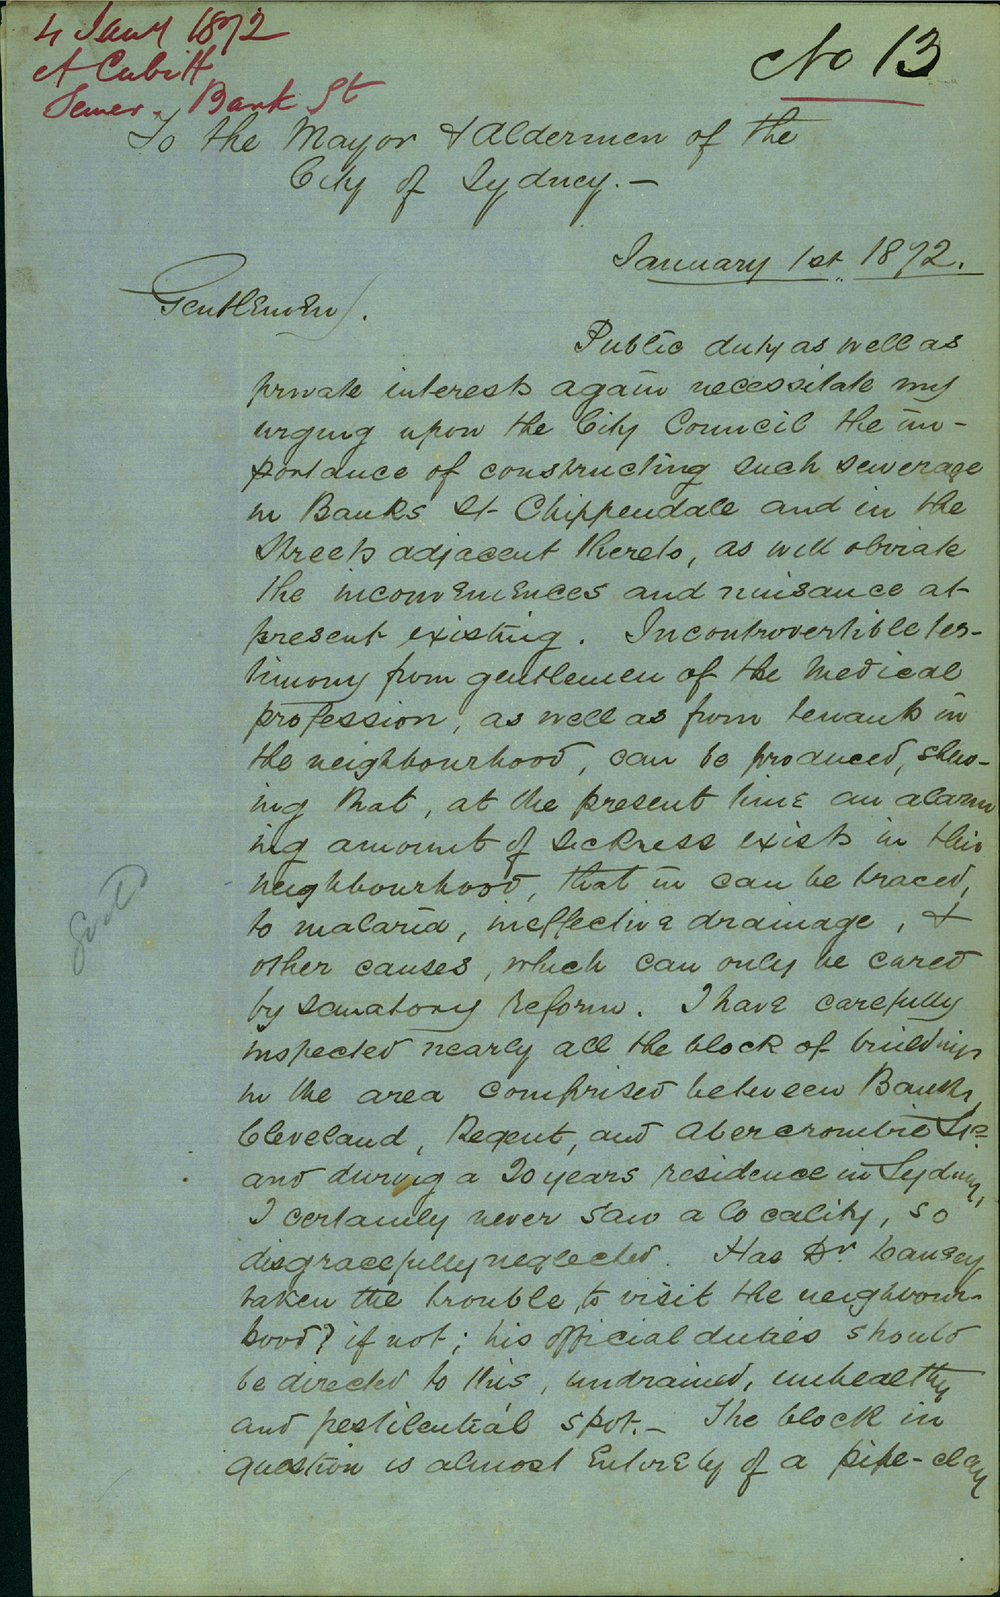 4 Jany 1872
No 13
A Cubitt
Sewer. Bank St
To the Mayor & Aldermen of the
City of Sydney. —
January 1st 1872.
Gentlemen/.
Public duty as well as
private interests again necessitate my
urging upon the City Council the im-
portance of constructing such sewerage
in Banks St Chippendale and in the
Streets adjacent thereto, as will obviate
the inconveniences and nuisance at
present existing. Incontrovertible tes-
timony from gentlemen of the medical
profession, as well as from tenants in
the neighbourhood, can be produced, shew-
ing that, at the present time an alarm
ing amount of sickness exists in this
neighbourhood, that in can be traced,
to malaria, ineffective drainage, &
other causes, which can only be cured
by sanatory reform. I have carefully
inspected nearly all the block of buildings
in the area comprised between Banks,
Cleveland, Regent, and Abercrombie Sts
and during a 20 years residence in Sydney,
I certainly never saw a locality, so
disgracefully neglected. Has Dr. Dansey
taken the trouble, to visit the neighbour-
hood? if not; his official duties should
be directed to this, undrained, unhealthy
and pestilential spot. — The block in
question is almost entirely of a pipe-clay